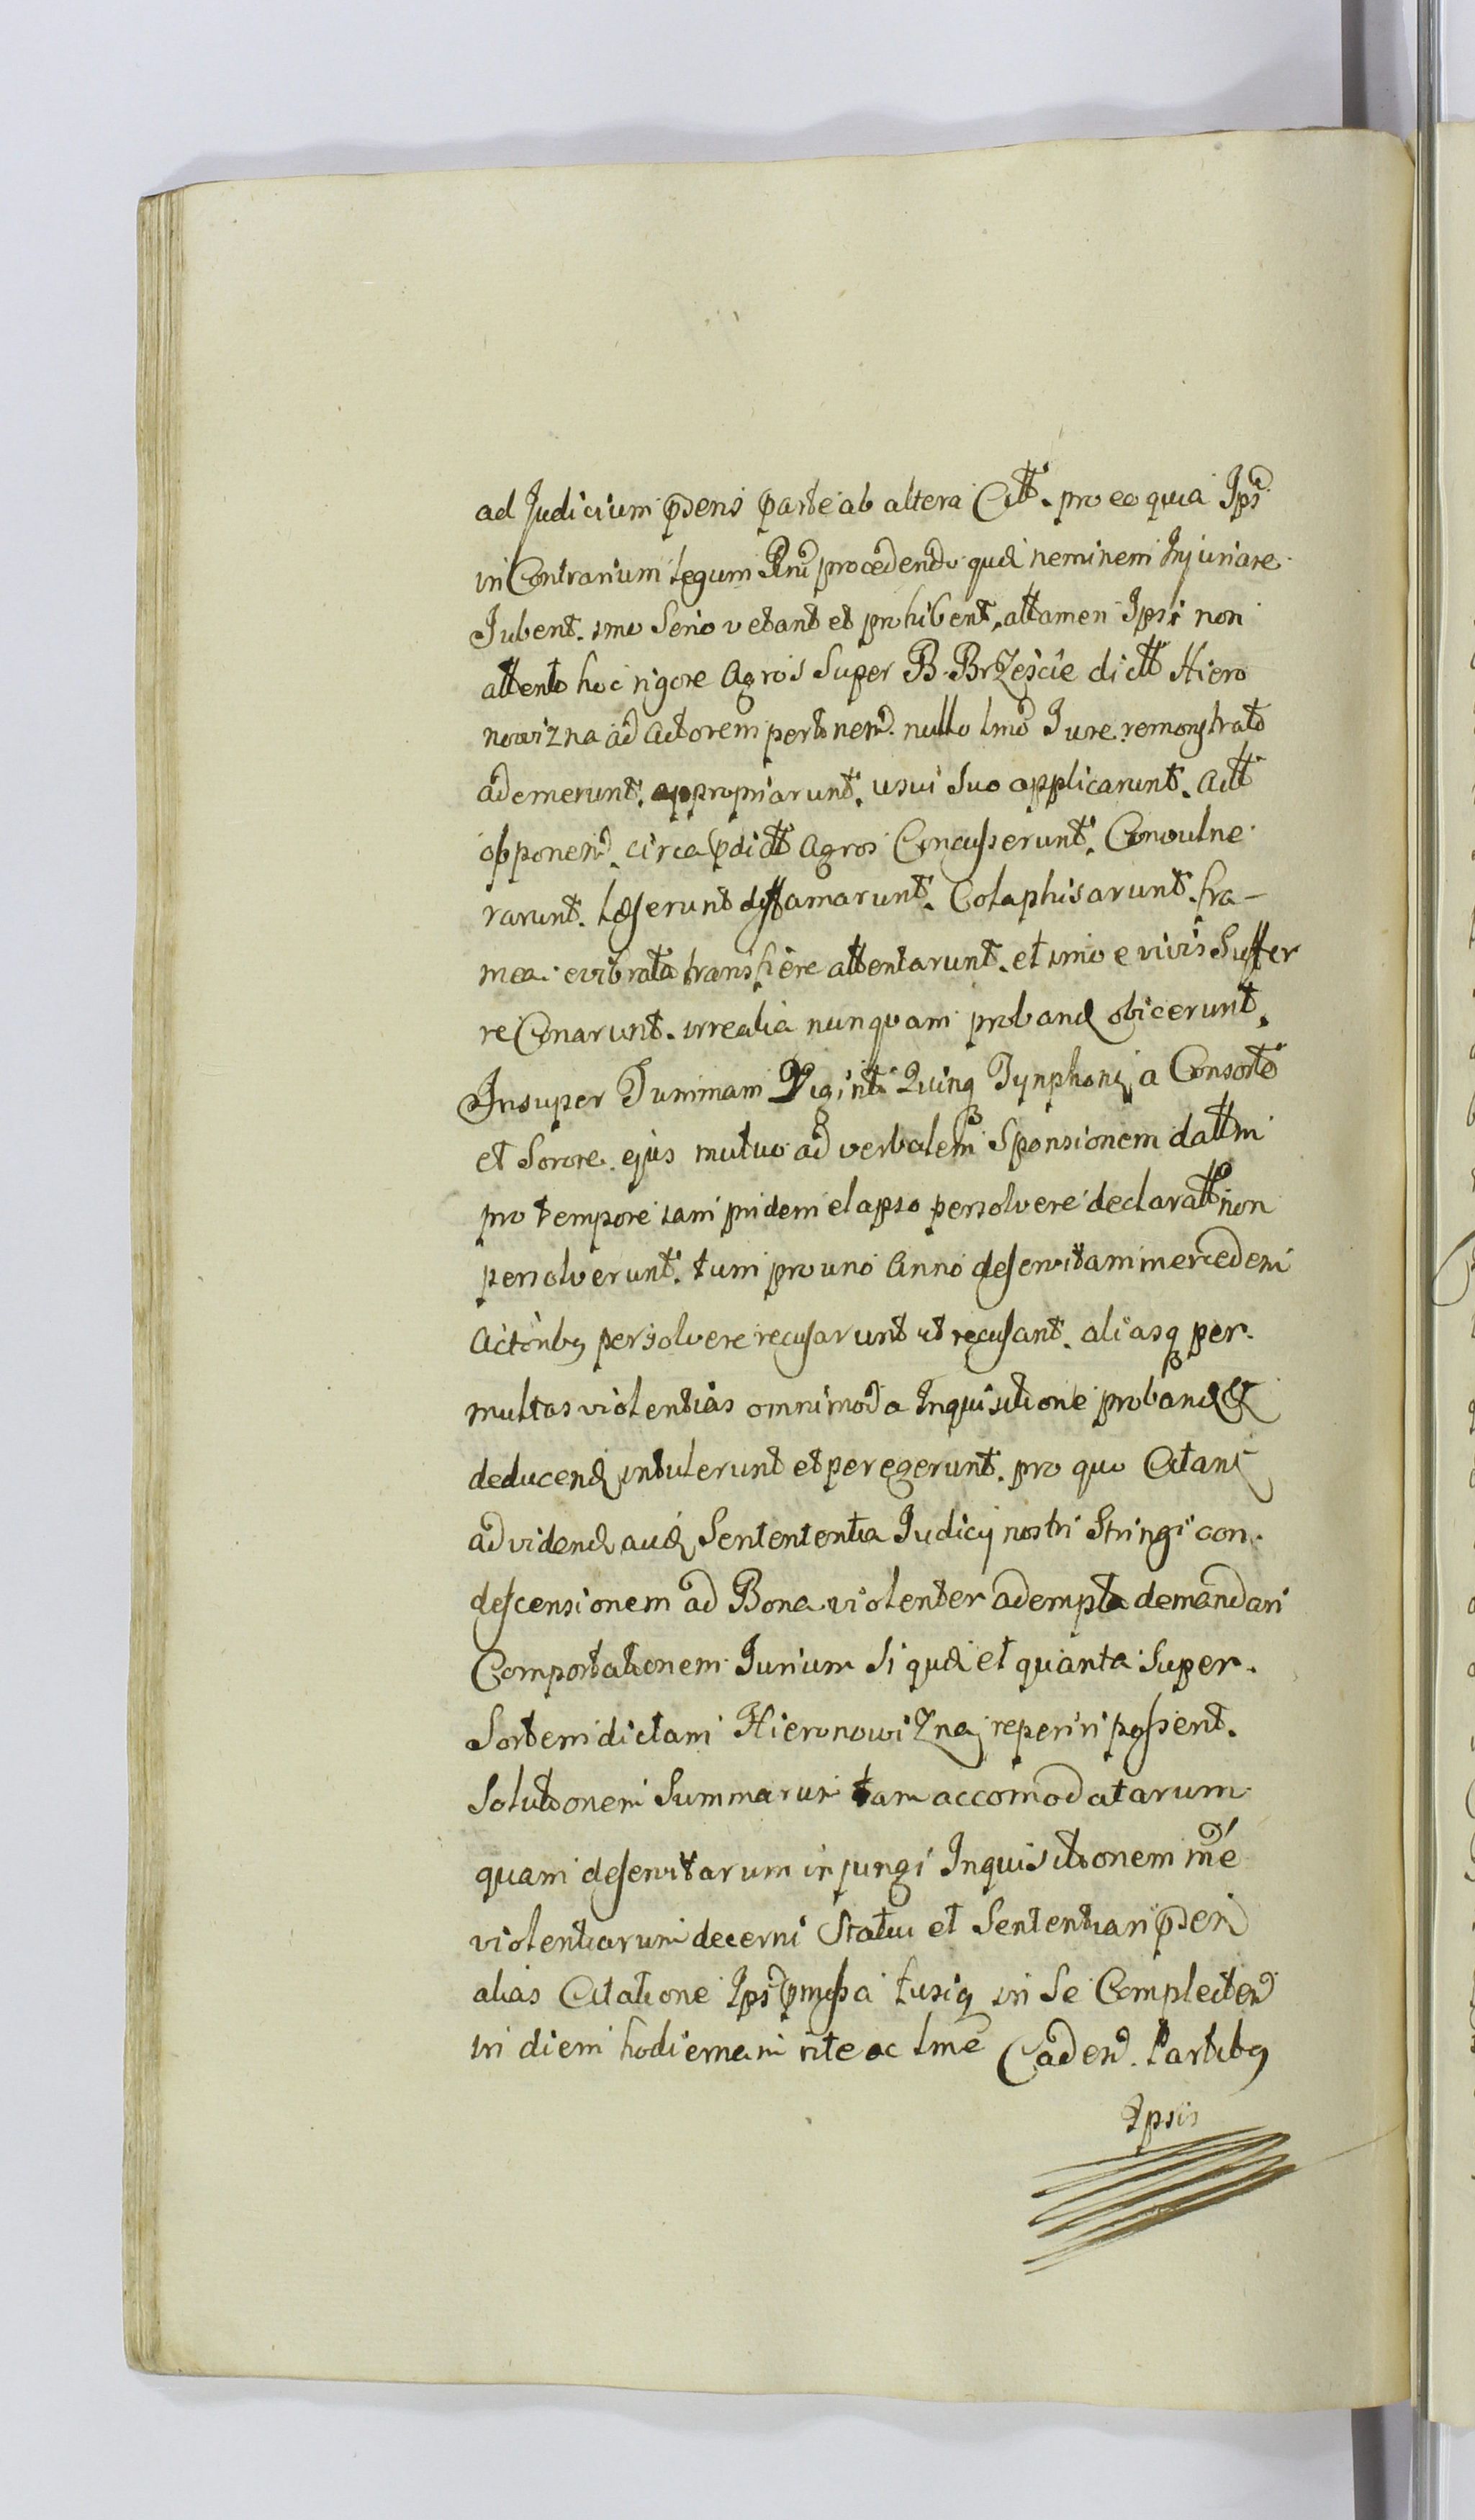 ad Judicium p̃sens parte ab altera Citt. pro eo quia Ips
in Contrarium legum Rni procedendo quæ neminem Injuriare
Jubent. imo Serio vetant et prohibent, attamen Ipsi non
attento hoc rigore Agros Super B. Brzescie dictt Hiero
nowizna ad actorem pertinen. nullo lmo Jure remonstrato
ademerunt. appropriarunt. usui Suo applicarunt. Actt
opponen. circa p̃dictt Agros Concusserunt. Convulne
rarunt. læserunt diffamarunt. Colaphisarunt. fra-
mea evibrata transfiere attentarunt. et imo e vivis Suffer
re Conarunt. irrealia nunquam proband obicerunt.
Insuper Summam Viginti Quinq Tynphoni a Consorte
et Sorore ejus mutuo ad verbalem Sponsionem dattm
pro tempore iam pridem elapso persolvere declaratt non
persolverunt. tum pro uno Anno deservitam mercedem
Actoribg persolvere recusarunt et recusant. aliasq per
multas violentias omnimoda Inquisitione proband &
deducend intulerunt et peregerunt. pro quo Citans
ad videnḍ auḍ Sentententia Judicij nostri Stringi con
descensionem ad Bona violenter adempta demandari
Comportationem Jurium si quæ et quanta Super
Sortem dictam Hieronowizna reperiri possent.
Solutionem Summarum tam accomodatarum
quam deservitarum injungi Inquisitionem rne
violentiarum decerni Statui et Sententiari p̃sen
alias Citatione Ips p̃missa fusiq in Se Complecten
in diem hodiernam rite ac lme Caden. Partibg
Ipsis